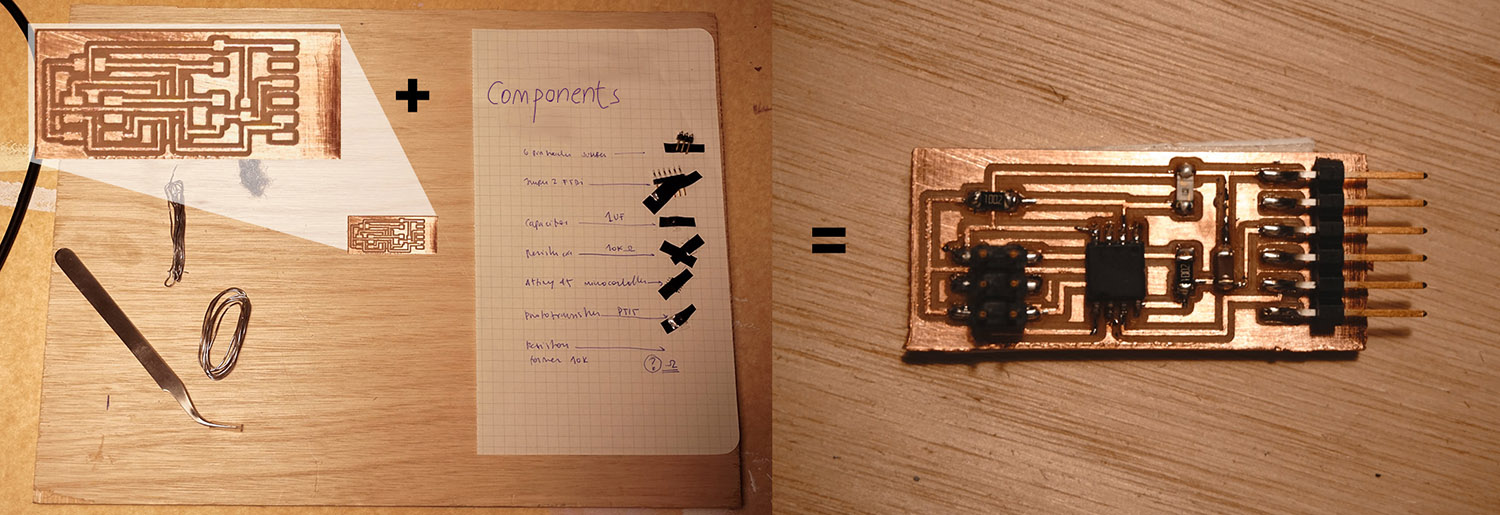 +
=
Components
6 pin header
FTDI
Capacitor 1uF
Resistor 10K Ω
Attiny 45 microcontroller
phototransistor PT15
Resistor
former 10K ? Ω
1002
1002